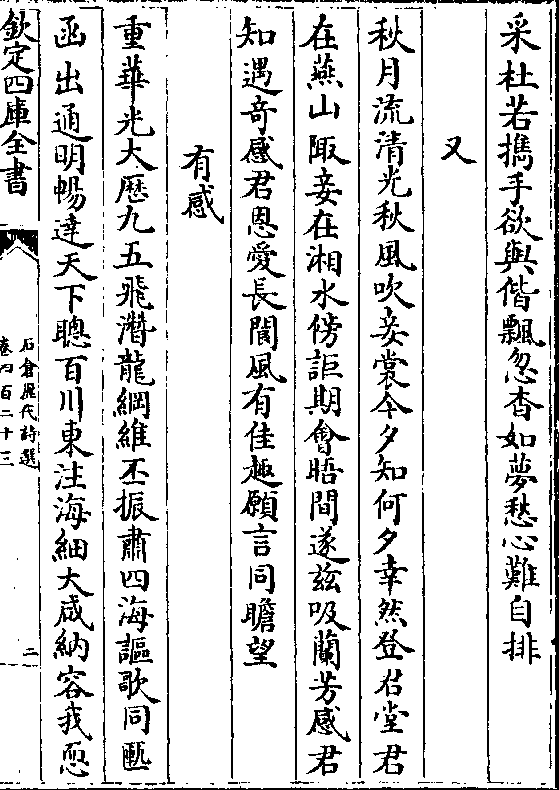 采杜若攜手欲與偕飄忽杳如夢愁心難自排
又
秋月流清光秋風吹妾裳今夕知何夕幸然登君堂君
在燕山陬妾在湘水傍詎期會晤間遂兹吸蘭芳感君
知遇奇感君恩愛長閨風有佳趣願言同瞻望
有感
重華光大歴九五飛潛龍綱維丕振肅四海謳歌同匭
函出通明暢達天下聰百川東注海細大咸納容我愿
欽定四庫全書
石倉歷代詩選
卷四百二十三
二